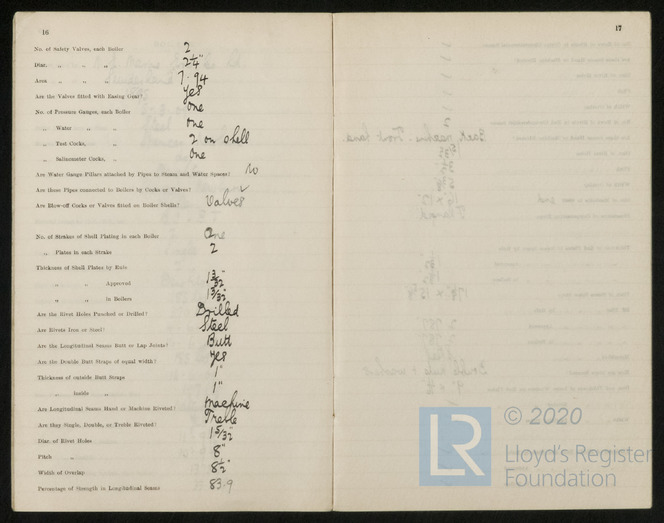 16
No. of Safety Valves, each Boiler 2
Diar. „ „ 2¼"
Area „ „ „ 7.94
Are the Valves fitted with Easing Gear? Yes
No. of Pressure Gauges, each Boiler One
„ Water „ „ One
„ Test Cocks, „ 2 on shell
„ Salinometer Cocks, „ One
Are Water Gauge Pillars attached by Pipes to Steam and Water Spaces? No
Are these Pipes connected to Boilers by Cocks or Valves?
Are Blow-off Cocks or Valves fitted on Boiler Shells? Valves
No. of Strakes of Shell Plating in each Boiler One
„ Plates in each Strake 2
Thickness of Shell Plates by Rule
„ „ Approved 1 3/32"
„ „ in Boilers 1 3/32"
Are the Rivet Holes Punched or Drilled? Drilled
Are Rivets Iron or Steel? Steel
Are the Longitudinal Seams Butt or Lap Joints? Butt
Are the Double Butt Straps of equal width? Yes
Thickness of outside Butt Straps 1"
„ inside „ 1"
Are Longitudinal Seams Hand or Machine Riveted? Machine
Are they Single, Double, or Treble Riveted? Treble
Diar. of Rivet Holes 1 5/32"
Pitch „ 8"
Width of Overlap 8½"
Percentage of Strength in Longitudinal Seams 83.9
17
LR
© 2020
Lloyd's Register
Foundation